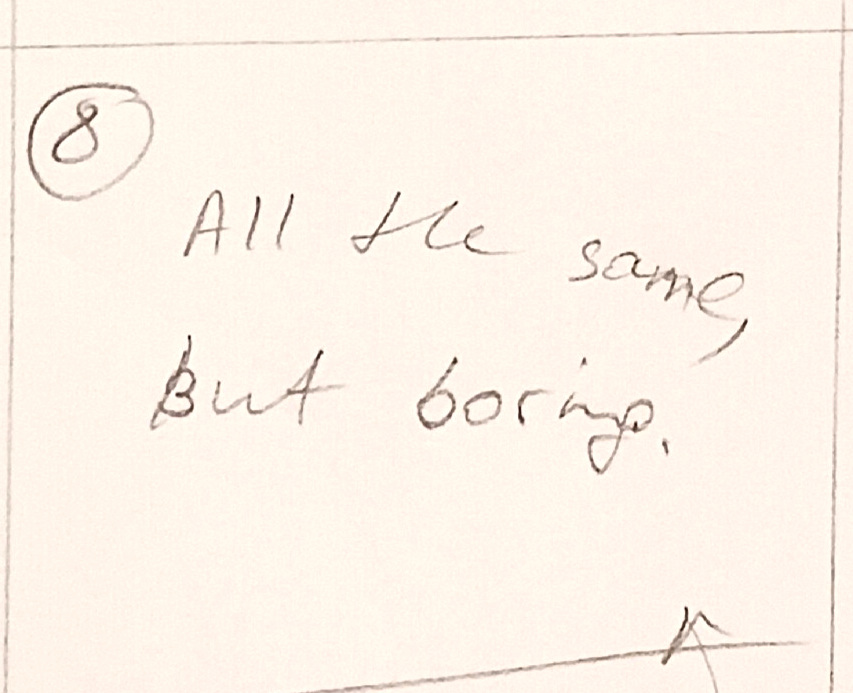 8
All the same,
But boring.